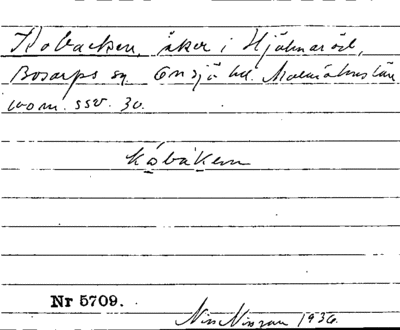 Kobacken, åker i Hjälmaröd,
Bosarps sn. Onsjö hd. Malmöhus län
150 m. ssv. 30.
Kóbàken
Nr 5709.
Nils Nilsson 1936.